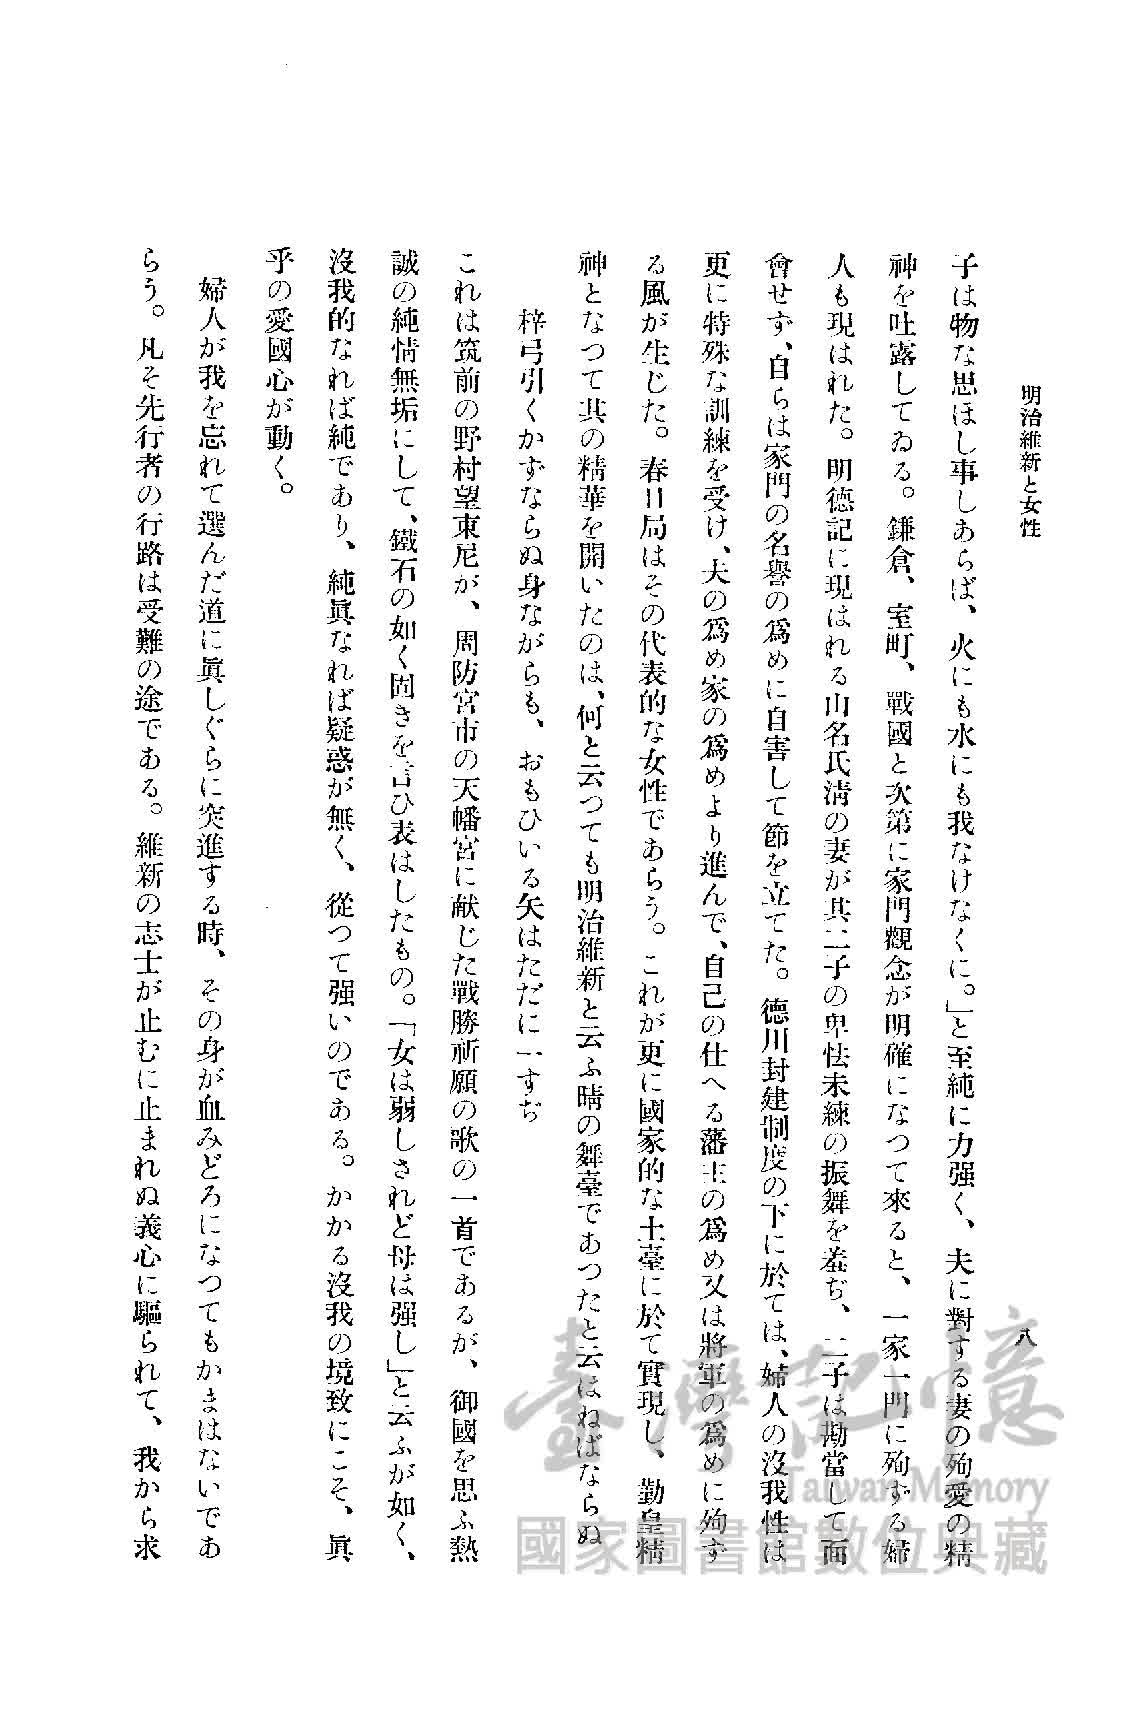 明治維新と女性
八
子は物な思ほし事しあらば、火にも水にも我なけなくに。」と至純に力强く、夫に對する妻の殉愛の精
神を吐露してゐる。鎌倉、室町、戰國と次第に家門觀念が明確になつて來ると、一家一門に殉ずる婦
人も現はれた。明德記に現はれる山名氏淸の妻が其二子の卑怯未練の振舞を羞ぢ、二子は勘當して面
會せず、自らは家門の名譽の爲めに自害して節を立てた。德川封建制度の下に於ては、婦人の沒我性は
更に特殊な訓練を受け、夫の爲め家の爲めより進んで、自己の仕へる藩主の爲め又は將軍の爲めに殉ず
る風が生じた。春日局はその代表的な女性であらう。これが更に國家的な土臺に於て實現し、勤皇精
神となつて其の精華を開いたのは、何と云つても明治維新と云ふ晴の舞臺であつたと云はねばならぬ
梓弓引くかずならぬ身ながらも、おもひいる矢はただに一すぢ
これは筑前の野村望東尼が、周防宮市の天幡宮に献じた戰勝祈願の歌の一首であるが、御國を思ふ熱
誠の純情無垢にして、鐵石の如く固きを言ひ表はしたもの。「女は弱しされど母は强し」と云ふが如く、
沒我的なれば純であり、純眞なれば疑惑が無く、從つて强いのである。かかる沒我の境致にこそ、眞
乎の愛國心が動く。
婦人が我を忘れて選んだ道に眞しぐらに突進する時、その身が血みどろになつてもかまはないであ
らう。凡そ先行者の行路は受難の途である。維新の志士が止むに止まれぬ義心に驅られて、我から求
臺灣記憶
Taiwan Memory
國家圖書館數位典藏